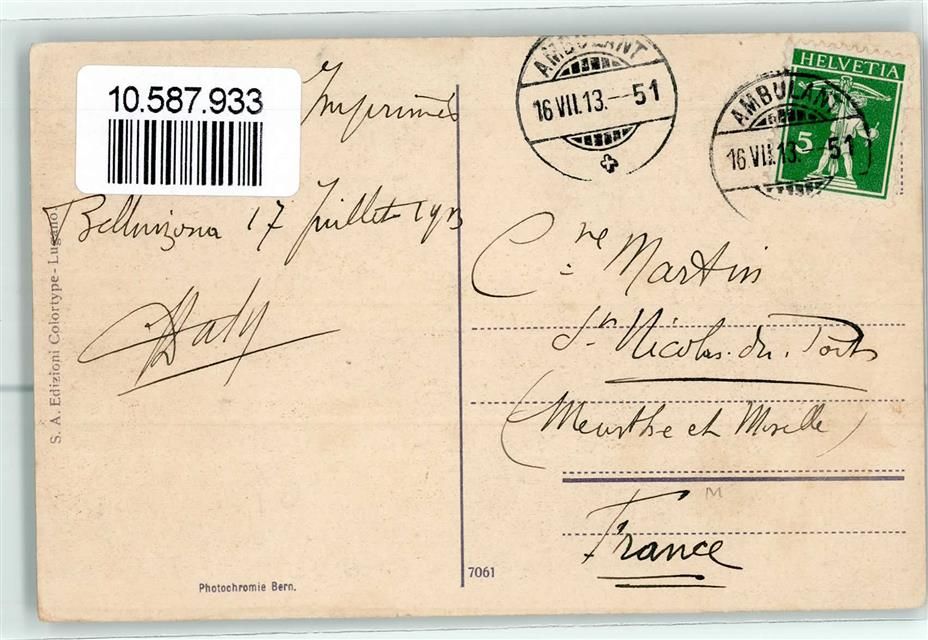 10.587.933
Imprimés
Bellinzona 17 Juillet 1913
Daly
S. A. Edizioni Colortype - Lugano.
Photochromie Bern.
7061
AMBULANT
16 VII. 13. — 51
AMBULANT
16 VII. 13. — 51
HELVETIA
5
Cne Martin
St Nicolas. du. Port
(Meurthe et Moselle)
M
France